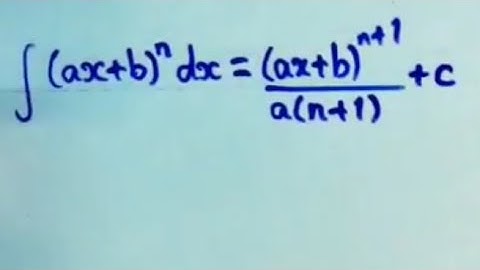 ∫(ax+b)^n dx = (ax+b)^(n+1)/a(n+1) + c